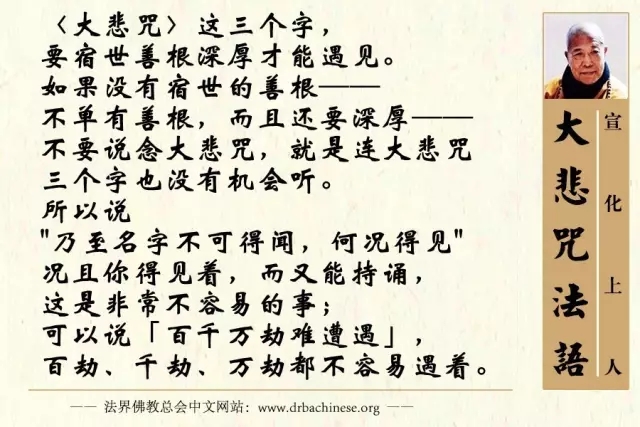 〈大悲咒〉这三个字，
要宿世善根深厚才能遇见。
如果没有宿世的善根——
不单有善根，而且还要深厚——
不要说念大悲咒，就是连大悲咒
三个字也没有机会听。
所以说
"乃至名字不可得闻，何况得见"
况且你得见着，而又能持诵，
这是非常不容易的事；
可以说「百千万劫难遭遇」，
百劫、千劫、万劫都不容易遇着。
—— 法界佛教总会中文网站：www.drbachinese.org ——
大悲咒法語
宣化上人